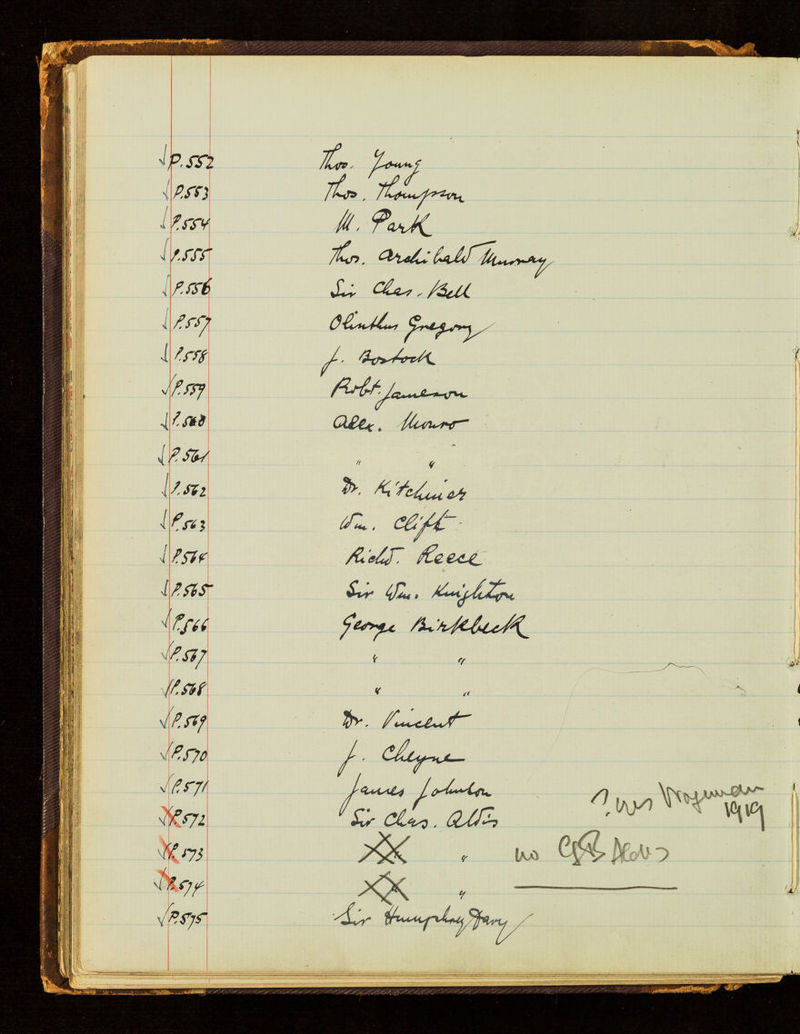 √ P.552 Thos. Young
√ P.553 Thos. Thompson
√ P.554 M. Park
√ P.555 Thos. Archibald Murray
√ P.556 Sir Chas. Bell
√ P.557 Olinthus Gregory
√ P.558 J. Bostock
√ P.559 Robt. Jameson
√ P.560 Alex. Monro
√ P.561 " "
√ P.562 Dr. Kitchiner
√ P.563 Wm. Clift
√ P.564 Richd. Reece
√ P.565 Sir Wm. Knighton
√ P.566 George Birkbeck
√ P.567 " "
√ P.568 " "
√ P.569 Dr. Vincent
√ P.570 J. Cheyne
√ P.571 James Johnson
√ P.572 Sir Chas. Aldis
? Wageman
1919
√ P.573 " "
no CJB Aldis
√ P.574 " "
√ P.575 Sir Humphrey Davy